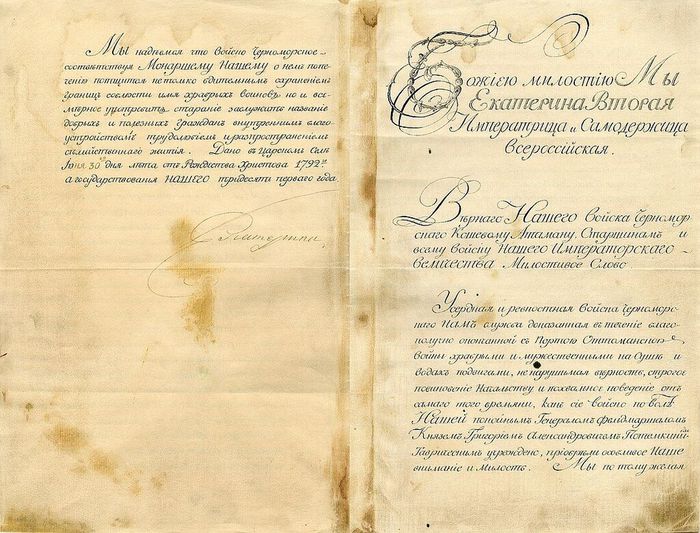 Мы надѣемся что Войско Черноморское
соотвѣтствуя Монаршему Нашему о немъ попе
ченію потщится не только бдительнымъ охраненіемъ
границъ соблюсти имя храбрыхъ воиновъ но и все
мѣрное употребитъ стараніе заслужить названіе
добрыхъ и полезныхъ гражданъ внутреннимъ благо
устройствомъ трудолюбіемъ и распространеніемъ
семейственнаго житія. Дано въ Царскомъ Селѣ
Іюня 30го дня лѣта отъ Рождества Христова 1792го
а государствованія НАШЕГО тридесять перваго года.
Екатерина
Божіею милостію Мы
Екатерина Вторая
Императрица и Самодержица
Всероссійская.
Вѣрнаго Нашего Войска Черномор
скаго Кошевому Атаману, Старшинамъ и
всему Войску Нашего Императорскаго
Величества Милостивое Слово
Усердная и ревностная Войска Черномор
скаго Намъ служба доказанная въ теченіе благо
получно оконченной съ Портою Оттоманскою
войны храбрыми и мужественными на Сушѣ и
водахъ подвигами, не нарушимая вѣрность, строгое
повиновеніе Начальству и похвальное поведеніе отъ
самаго того времяни, какъ сіе войско по волѣ
Нашей покойнымъ Генераломъ Фельдмаршаломъ
Княземъ Григоріемъ Александровичемъ Потемкинымъ
Таврическимъ учреждено, пріобрѣли особливое Наше
вниманіе и Милость. Мы по тому желая